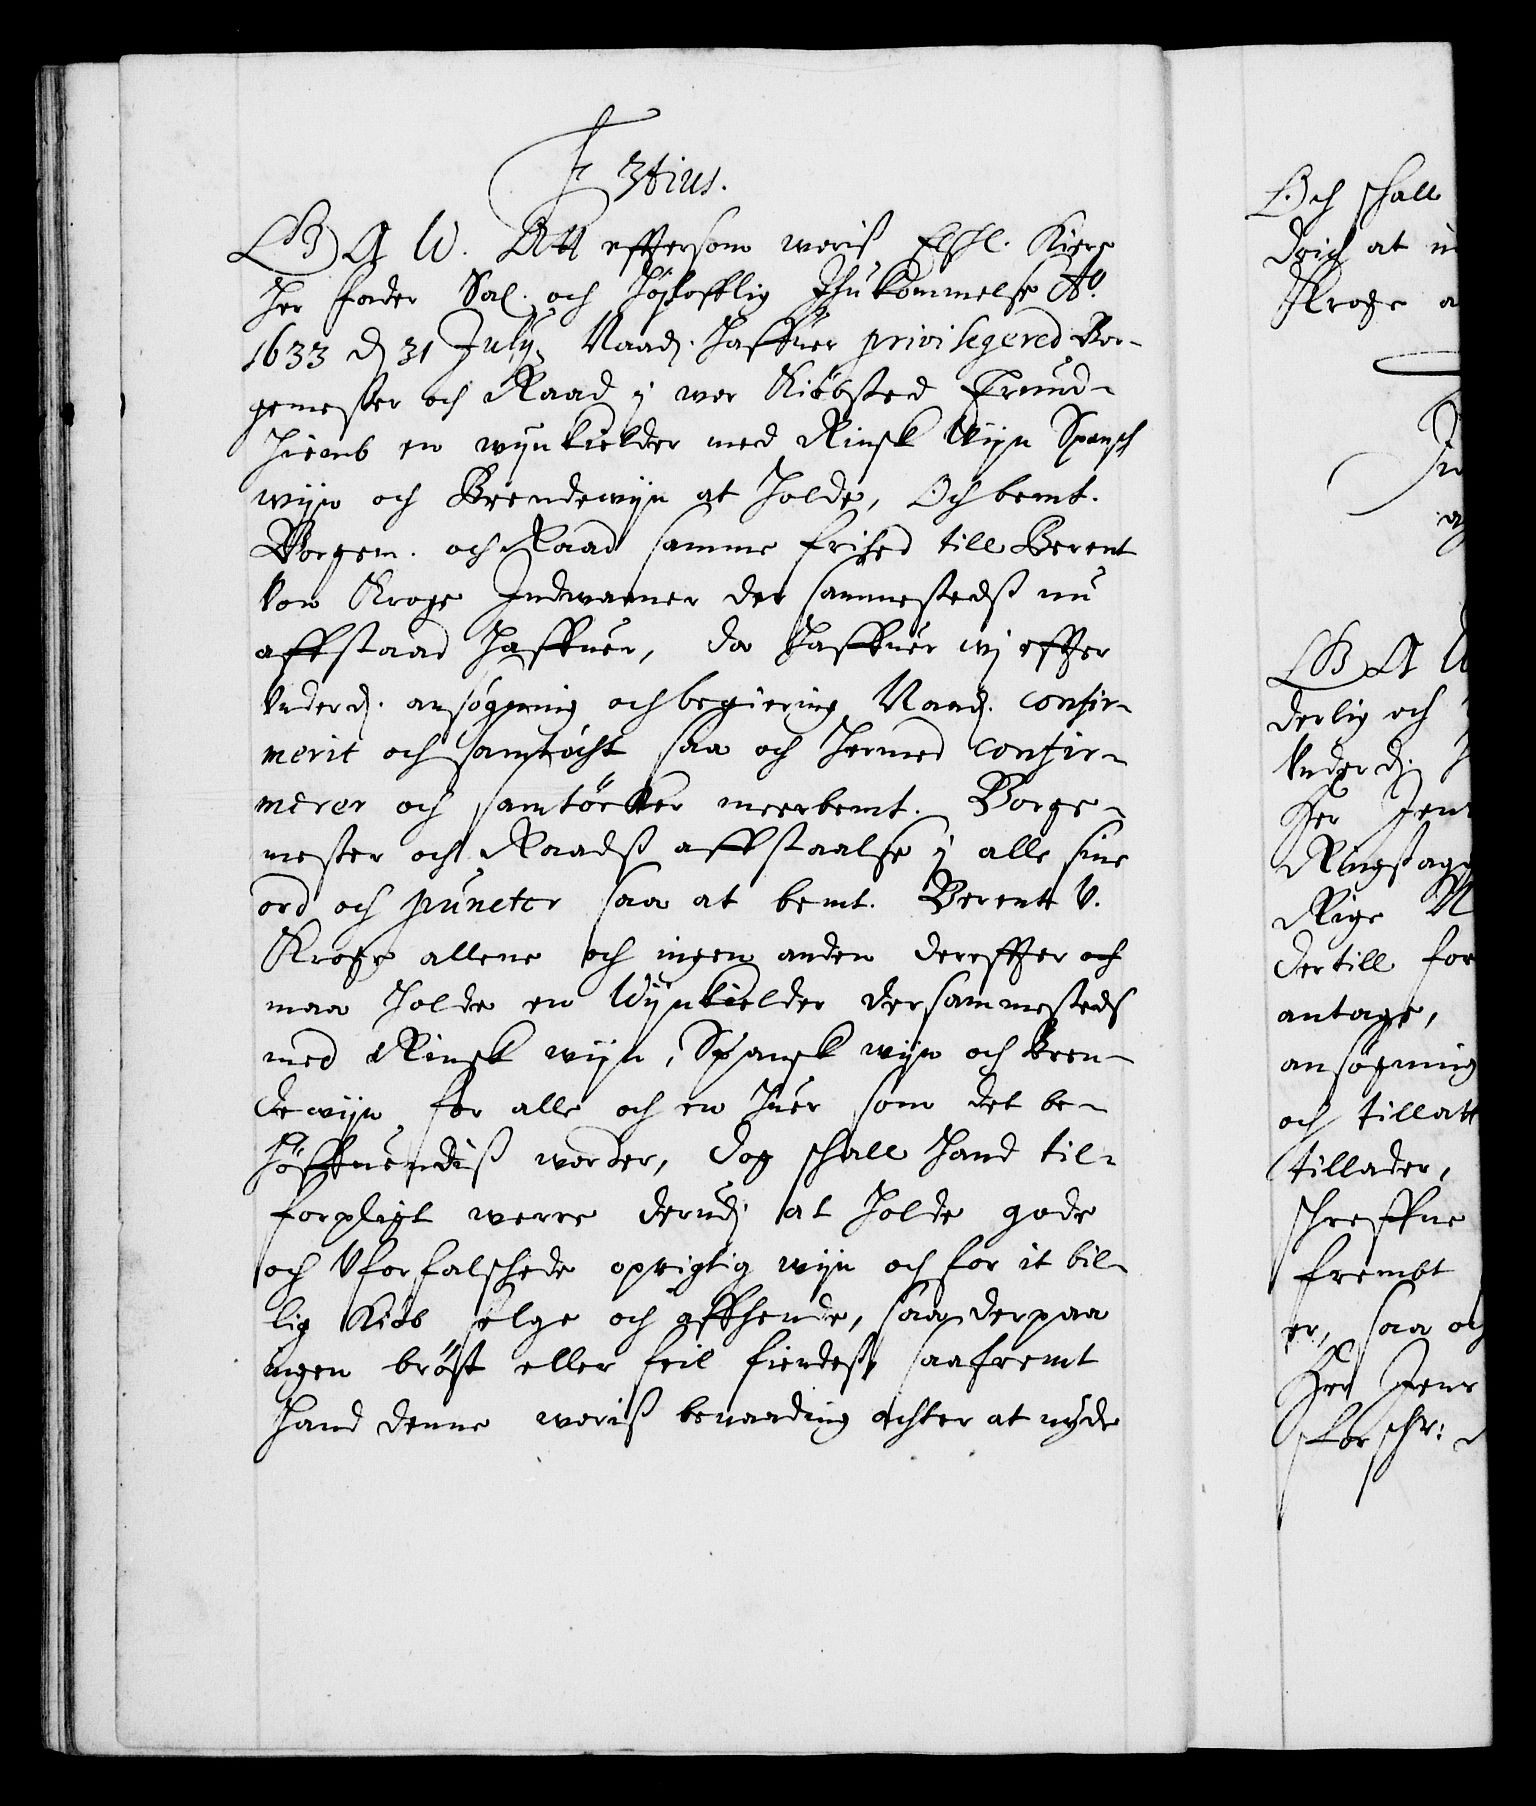 F 3tius.
G A W. Att effterson woriß Elshl. Kiere
Her Fader Sal. och Höjlofflig Ihukommelse Aº.
1633 d. 31 July. Naad. haffuer privilegered Bor-
gemester och Raad j wor Kiöbsted Trund-
hiemb en wynkielder med Rinsk Wyn Spansch
wyn och Brendewyn at holde, Och bemt.
Borgem. och Raad samme frihed till Berent
Von Kroge Indwaaner der sammestedß nu
affstaad haffuer, da haffuer wj effter
Underd. ansögning och begiering Naad. confir-
merit och samtöcht saa och hermed confir-
merer och samtöcker meerbemt. Borge-
mester och Raadß affstaalse j alle sine
ord och puncter saa at bemt. Berentt V.
Kroge allene och ingen anden dereffter och
maa holde en Wynkielder dersammesteds
med Rinsk wyn, Spansk wyn och Bren-
dewyn for alle och en huer som det be-
höffuendiß worder, dog schall hand til-
forpligt werre derudj at holde gode
och Uforfalschede oprigtig wyn och for it bil-
lig Kiöb selge och affhende, saa derpaa
ingen bröst eller feil fiendeß, saafremt
hand denne woriß benaading achter at nyde
Och schall
drich at
Kroge
G A W
derlig och
Underd.
Her Jens
Ringsag
Rige N
dertill for
antage,
ansögning
och tillatt
tillader,
schreffne
frembt
er, saa och
Her Jens
forschr: